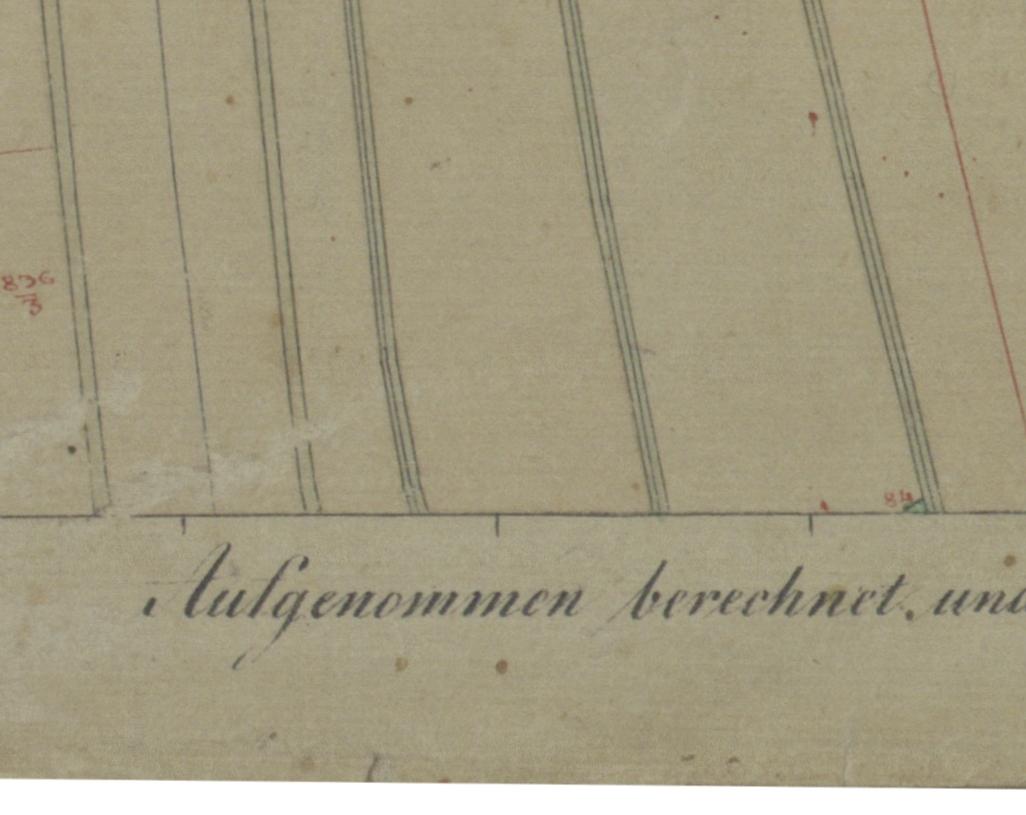 836
3
84
Aufgenommen berechnet, und